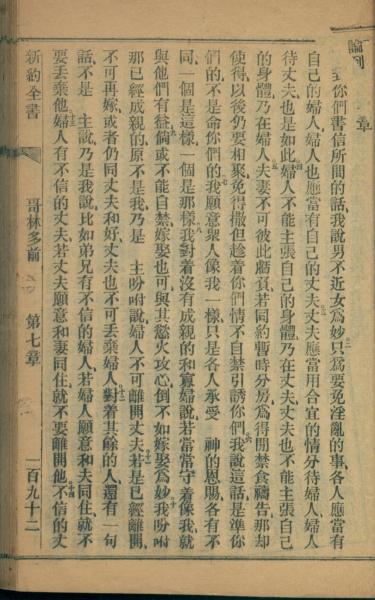 章
到你們書信所間的話、我說男不近女爲妙、只爲要免淫亂的事、各人應當有
自己的婦人、婦人也應當有自己的丈夫、丈夫應當用合宜的情分待婦人、婦人
待丈夫、也是如此、婦人不能主張自己的身體、乃在丈夫、丈夫也不能主張自己
的身體、乃在婦人、夫妻不可彼此虧負、若同約暫時分房、爲得閒禁食禱告、那却
使得、以後仍要相聚、免得撒但趁着你們情不自禁、引誘你們、我說這話、是準你
們的、不是命你們的、我願意衆人像我一樣、只是各人承受 神的恩賜各有不
同、一個是這樣、一個是那樣、我對着沒有成親的和寡婦說、若當常守着像我、就
與他們有益、倘或不能自禁、嫁娶也可、與其慾火攻心、倒不如嫁娶爲妙、我吩咐
那已經成親的、原不是我、乃是 主吩咐說、婦人不可離開丈夫、若是已經離開、
不可再嫁、或者仍同丈夫和好、丈夫也不可丟棄婦人、對着其餘的人、還有一句
話、不是 主說、乃是我說、比如弟兄有不信的婦人、若婦人願意和夫同住、就不
要丟棄他、婦人有不信的丈夫、若丈夫願意和妻同住、就不要離開他、不信的丈
新約全書
哥林多前 第七章
一百九十二